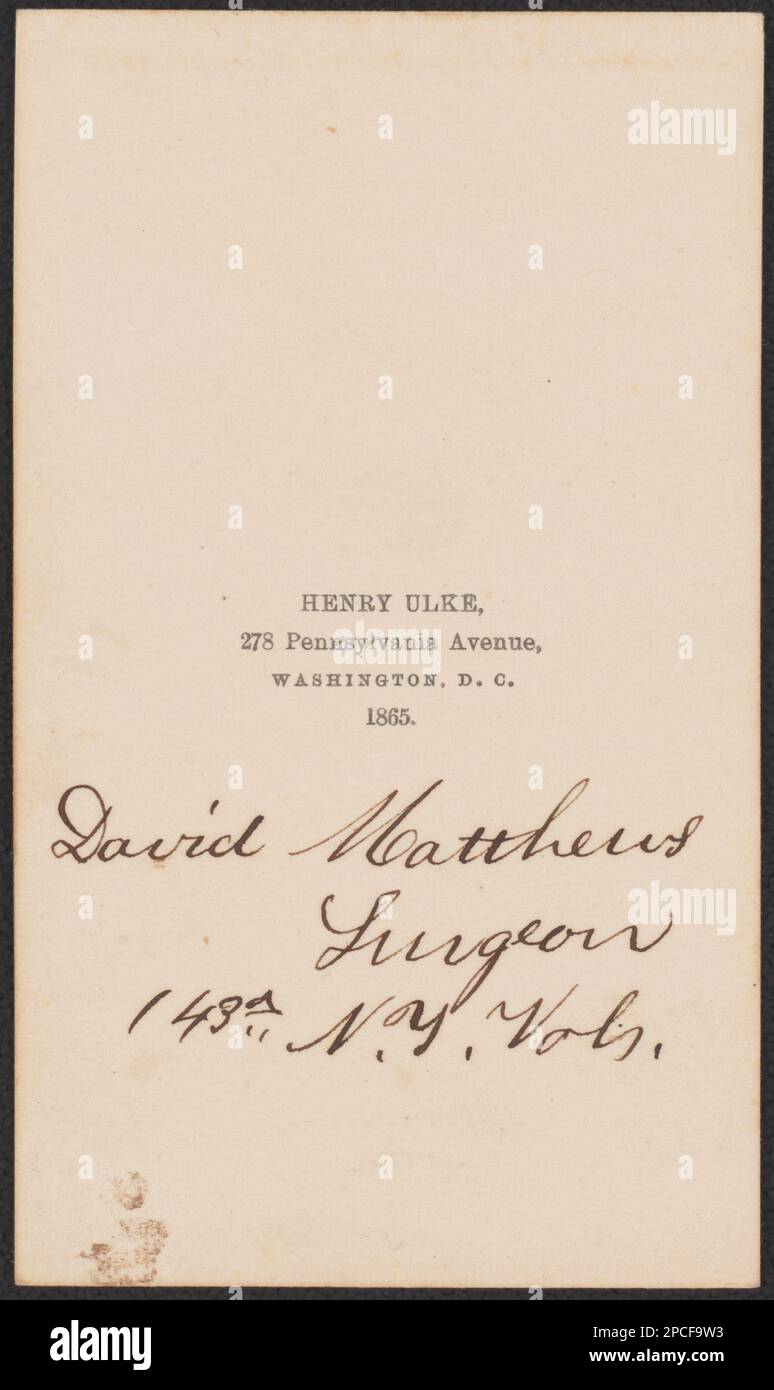 alamy
HENRY ULKE,
278 Pennsylvania Avenue,
WASHINGTON, D. C.
1865.
David Matthews
Surgeon
143d N.Y. Vols.
alamy
Image ID: 2PCF9W3
www.alamy.com